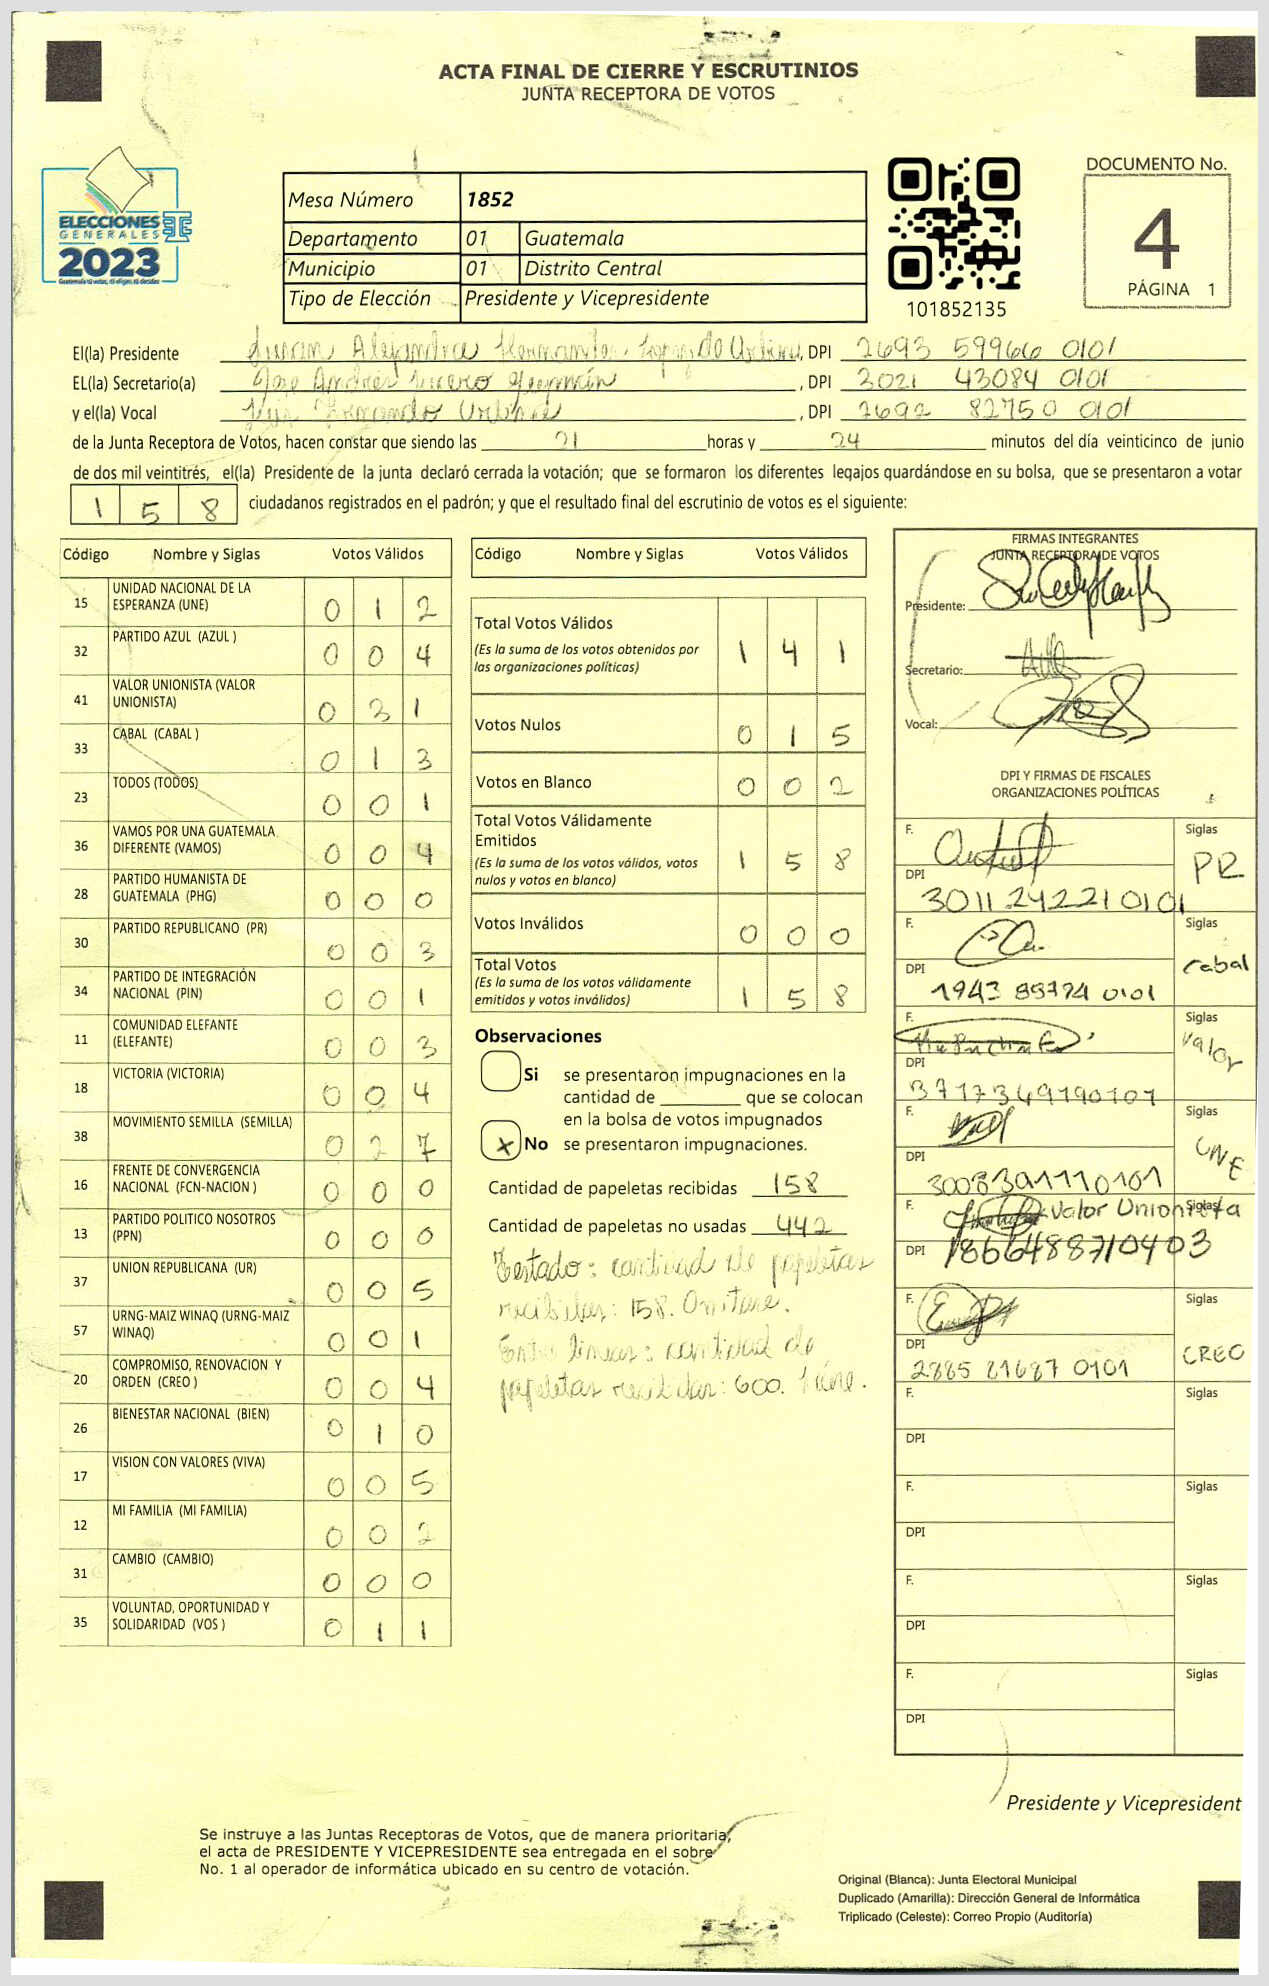 ACTA FINAL DE CIERRE Y ESCRUTINIOS
JUNTA RECEPTORA DE VOTOS
ELECCIONES
GENERALES
2023
Mesa Número 1852
Departamento 01 Guatemala
Municipio 01 Distrito Central
Tipo de Elección Presidente y Vicepresidente
101852135
DOCUMENTO No.
4
PÁGINA 1
El(la) Presidente Alejandra , DPI 2693 59966 0101
EL(la) Secretario(a) Jose Andrés , DPI 3021 43084 0101
y el(la) Vocal Luis Fernando , DPI 2692 82750 0101
de la Junta Receptora de Votos, hacen constar que siendo las 21 horas y 24 minutos del día veinticinco de junio
de dos mil veintitrés, el(la) Presidente de la junta declaró cerrada la votación; que se formaron los diferentes legajos guardándose en su bolsa, que se presentaron a votar
1 5 8 ciudadanos registrados en el padrón; y que el resultado final del escrutinio de votos es el siguiente:
Código Nombre y Siglas Votos Válidos
15 UNIDAD NACIONAL DE LA ESPERANZA (UNE) 0 1 2
32 PARTIDO AZUL (AZUL ) 0 0 4
41 VALOR UNIONISTA (VALOR UNIONISTA) 0 3 1
33 CABAL (CABAL ) 0 1 3
23 TODOS (TODOS) 0 0 1
36 VAMOS POR UNA GUATEMALA DIFERENTE (VAMOS) 0 0 4
28 PARTIDO HUMANISTA DE GUATEMALA (PHG) 0 0 0
30 PARTIDO REPUBLICANO (PR) 0 0 3
34 PARTIDO DE INTEGRACIÓN NACIONAL (PIN) 0 0 1
11 COMUNIDAD ELEFANTE (ELEFANTE) 0 0 3
18 VICTORIA (VICTORIA) 0 0 4
38 MOVIMIENTO SEMILLA (SEMILLA) 0 2 7
16 FRENTE DE CONVERGENCIA NACIONAL (FCN-NACION ) 0 0 0
13 PARTIDO POLITICO NOSOTROS (PPN) 0 0 0
37 UNION REPUBLICANA (UR) 0 0 5
57 URNG-MAIZ WINAQ (URNG-MAIZ WINAQ) 0 0 1
20 COMPROMISO, RENOVACION Y ORDEN (CREO ) 0 0 4
26 BIENESTAR NACIONAL (BIEN) 0 1 0
17 VISION CON VALORES (VIVA) 0 0 5
12 MI FAMILIA (MI FAMILIA) 0 0 2
31 CAMBIO (CAMBIO) 0 0 0
35 VOLUNTAD, OPORTUNIDAD Y SOLIDARIDAD (VOS ) 0 1 1
Código Nombre y Siglas Votos Válidos
Total Votos Válidos 1 4 1
(Es la suma de los votos obtenidos por
las organizaciones políticas)
Votos Nulos 0 1 5
Votos en Blanco 0 0 2
Total Votos Válidamente
Emitidos 1 5 8
(Es la suma de los votos válidos, votos
nulos y votos en blanco)
Votos Inválidos 0 0 0
Total Votos 1 5 8
(Es la suma de los votos válidamente
emitidos y votos inválidos)
Observaciones
Si se presentaron impugnaciones en la
cantidad de ________ que se colocan
en la bolsa de votos impugnados
X No se presentaron impugnaciones.
Cantidad de papeletas recibidas 158
Cantidad de papeletas no usadas 442
Testado: cantidad de papeletas
recibidas: 158. Omitase.
Entre lineas: cantidad de
papeletas recibidas: 600.
FIRMAS INTEGRANTES
JUNTA RECEPTORA DE VOTOS
Presidente:
Secretario:
Vocal:
DPI Y FIRMAS DE FISCALES
ORGANIZACIONES POLÍTICAS
F. Siglas PR
DPI 3011 24221 0101
F. Siglas Cabal
DPI 0101
F. Siglas Valor
DPI 3717349190101
F. Siglas UNE
DPI
F. Siglas Valor Unionista
DPI 1866488710403
F. Siglas CREO
DPI 0101
F. Siglas
DPI
F. Siglas
DPI
F. Siglas
DPI
F. Siglas
DPI
Presidente y Vicepresident
Se instruye a las Juntas Receptoras de Votos, que de manera prioritaria,
el acta de PRESIDENTE Y VICEPRESIDENTE sea entregada en el sobre
No. 1 al operador de informática ubicado en su centro de votación.
Original (Blanca): Junta Electoral Municipal
Duplicado (Amarilla): Dirección General de Informática
Triplicado (Celeste): Correo Propio (Auditoría)